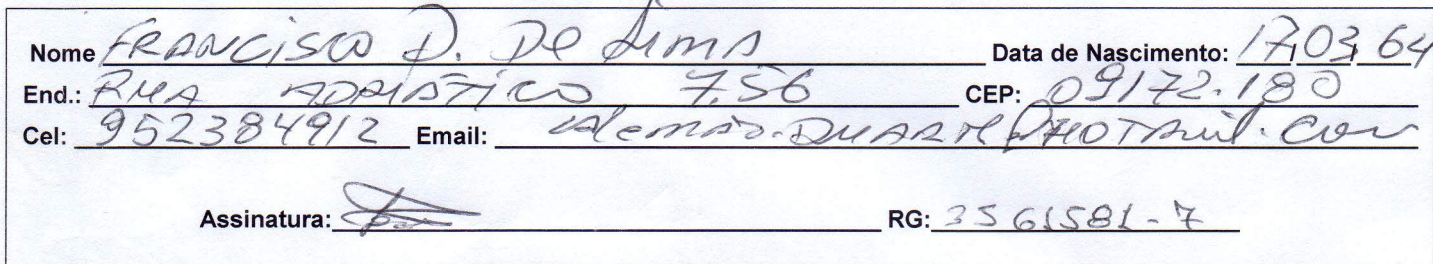 Nome FRANCISCO D. De Lima Data de Nascimento: 17,03,64
End.: RUA ADRIÁTICO 756 CEP: 09172-180
Cel: 952384912 Email: alemão.DUARTE@HOTMAIL.COM
Assinatura: RG: 3561581-7